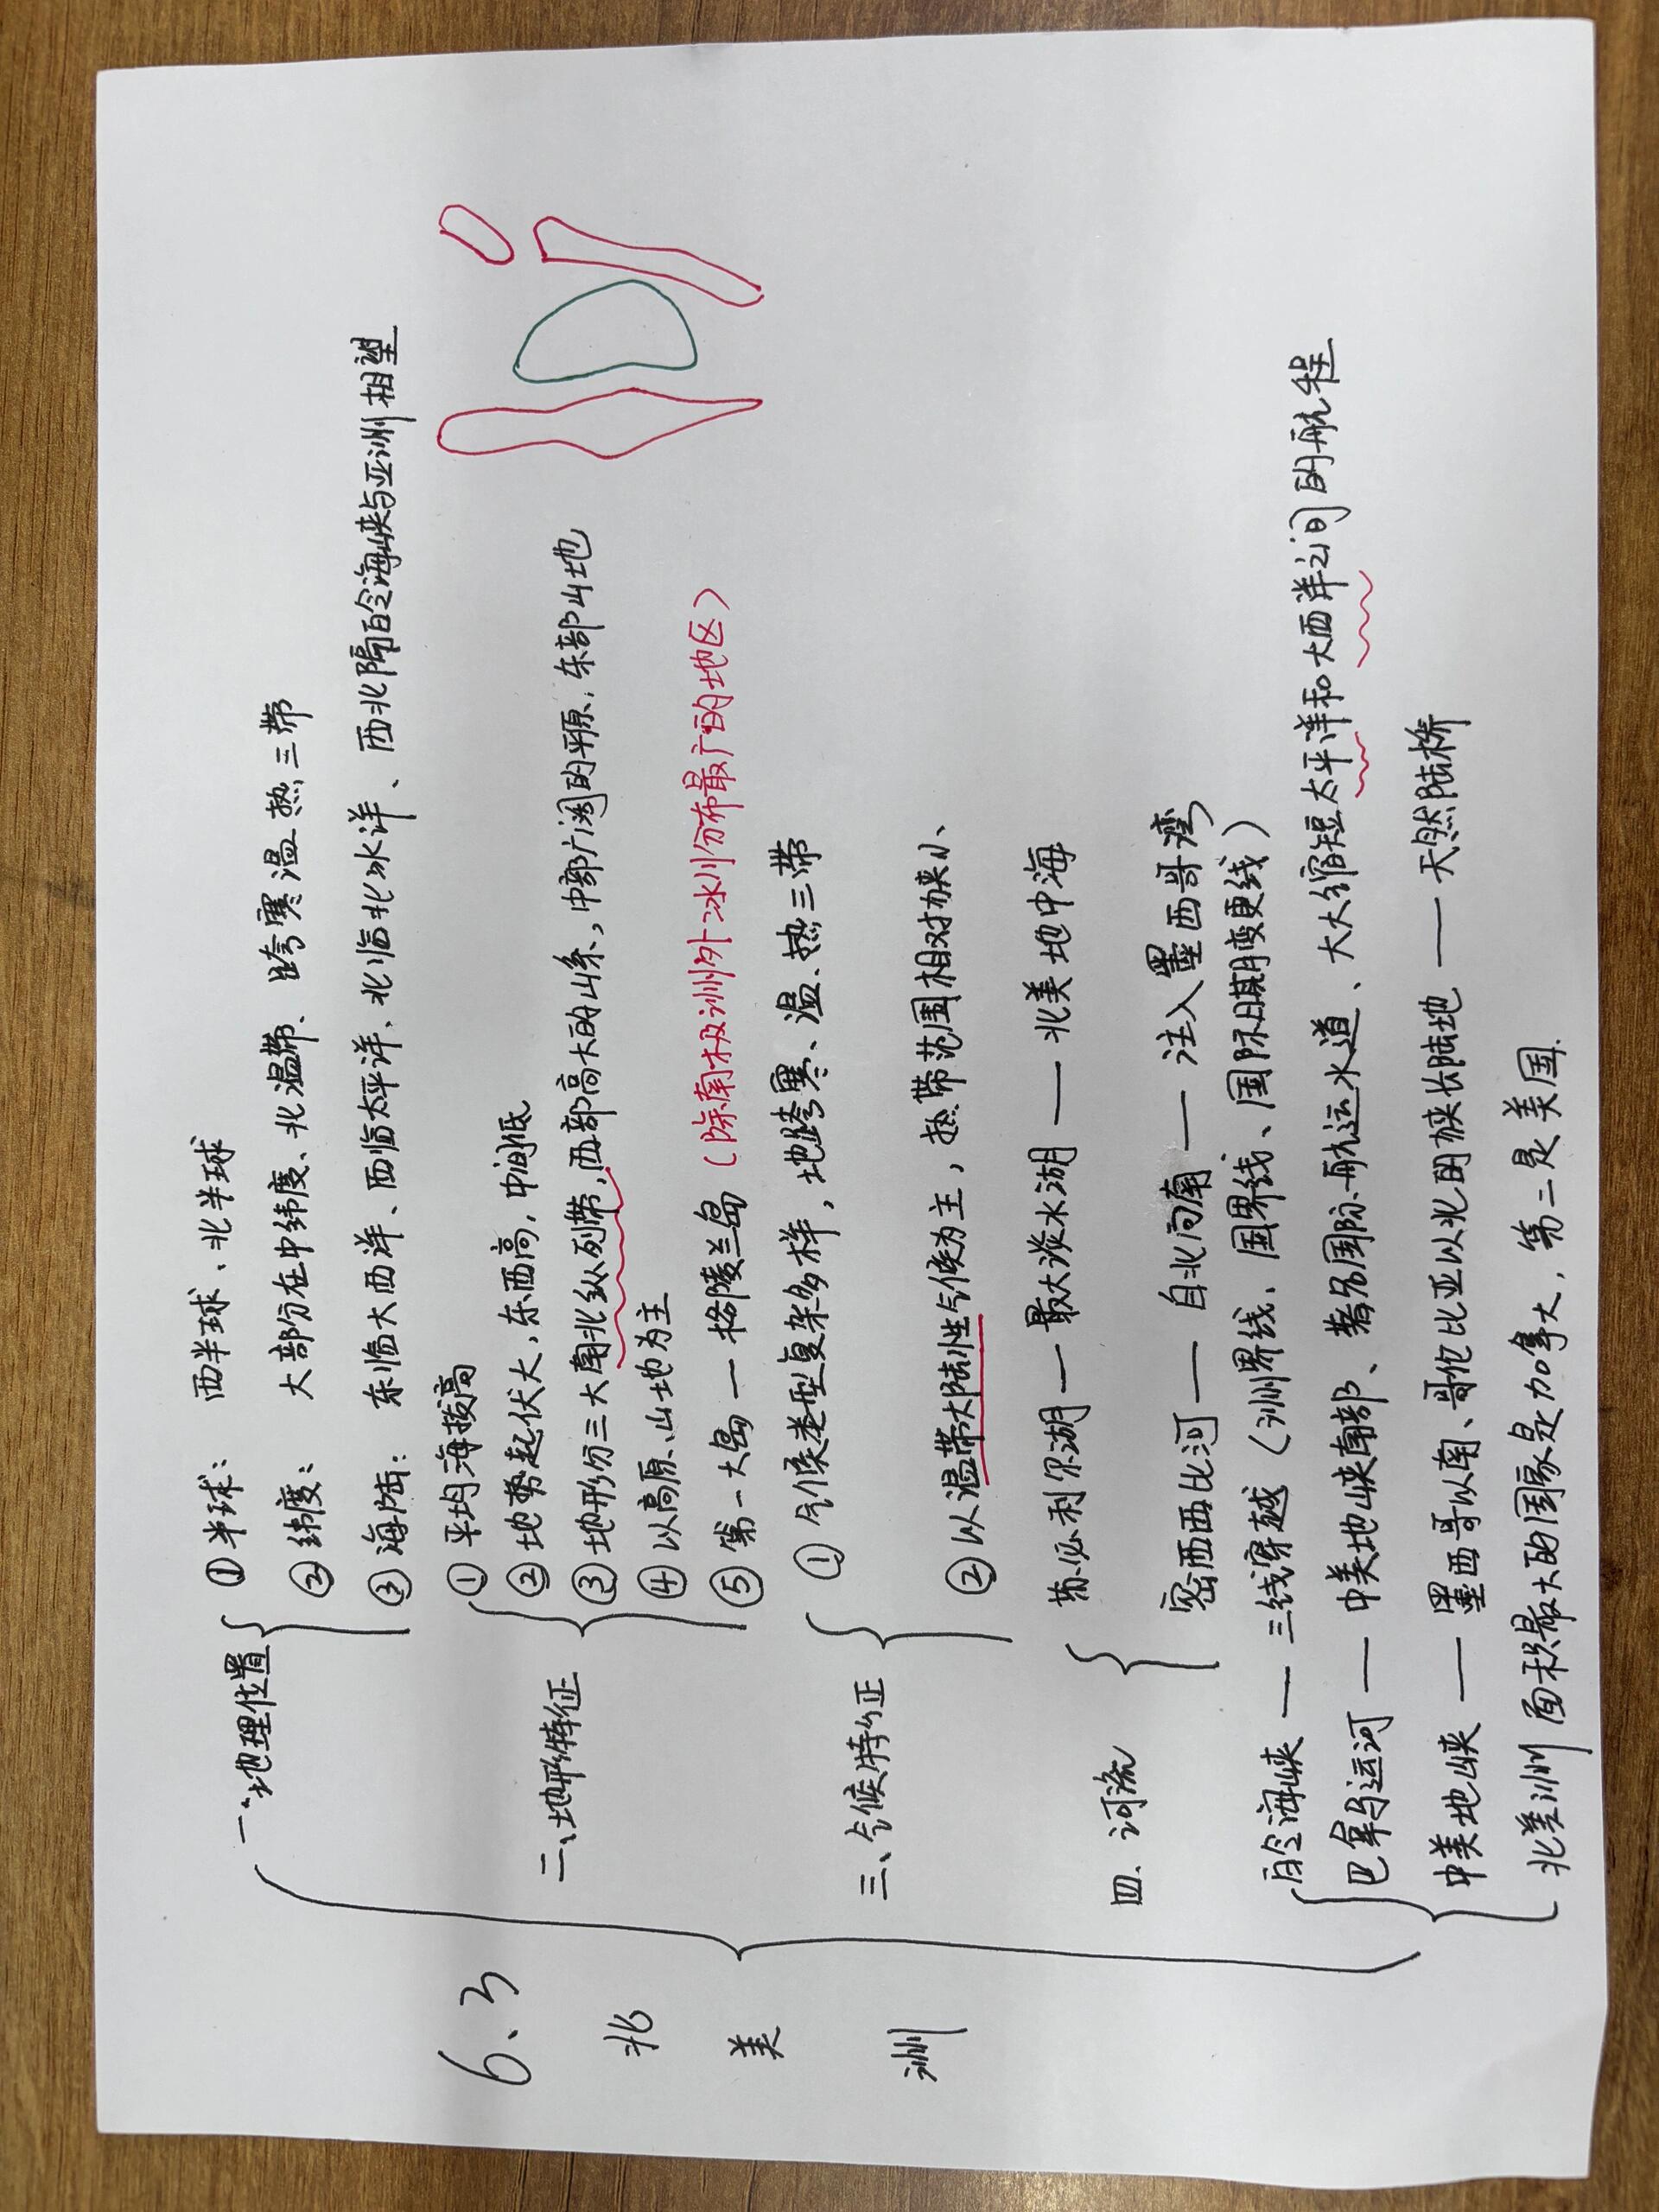 6.3
北
美
洲
一、地理位置
①半球： 西半球、北半球
②纬度： 大部分在中纬度、北温带、跨寒温热三带
③海陆： 东临大西洋、西临太平洋、北临北冰洋、西北隔白令海峡与亚洲相望
二、地形特征
①平均海拔高
②地势起伏大，东西高，中间低
③地形分三大南北纵列带，西部高大的山系，中部广阔的平原、东部山地
④以高原、山地为主
⑤第一大岛一格陵兰岛（除南极洲外冰川分布最广的地区）
三、气候特征
①气候类型复杂多样，地跨寒、温、热三带
②以温带大陆性气候为主，热带范围相对狭小、
四、河流
苏必利尔湖—最大淡水湖—北美地中海
密西西比河—自北向南—注入墨西哥湾
白令海峡—三线穿越（洲界线、国界线、国际日期变更线）
巴拿马运河—中美地峡南部、著名国际航运水道、大大缩短太平洋和大西洋之间的航程
中美地峡—墨西哥以南、哥伦比亚以北的狭长陆地—天然陆桥
北美洲面积最大的国家是加拿大，第二是美国.